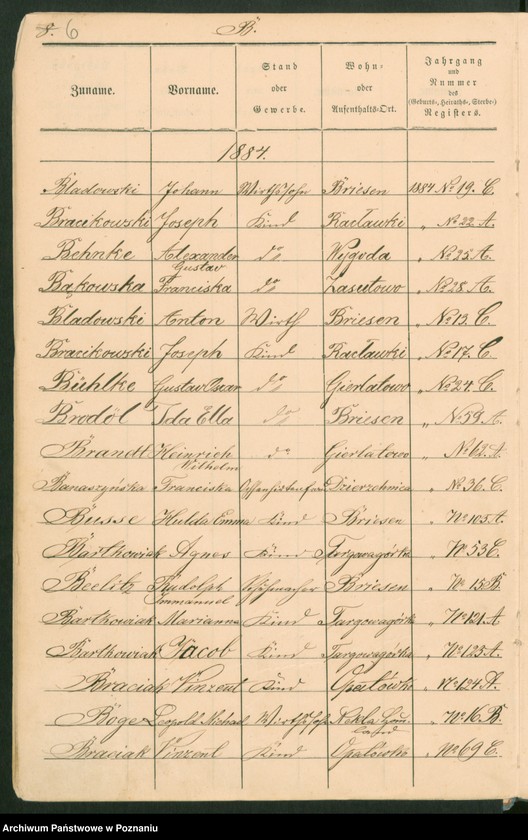 8. 6 B.
Zuname. Vorname. Stand oder Gewerbe. Wohn- oder Aufenthalts-Ort. Jahrgang und Nummer des (Geburts-, Heiraths-, Sterbe-) Registers.
1884.
Bladowski Johann Wirthssohn Briesen 1884 No 19. C.
Bracikowski Joseph Kind Racławki " No 22 A.
Behnke Alexander Gustav do Wygoda " No 25 A.
Bąkowska Franciska do Zasutowo " No 28. A.
Bladowski Anton Wirth Briesen " No 13 C.
Bracikowski Joseph Kind Racławki " No 17. C.
Bühlke Gustav Oscar do Gierlatowo " No 24. C.
Brodöl Ida Ella do Briesen " No 59. A.
Brandt Heinrich Wilhelm do Gierlatowo " No 62. A.
Banaszyńska Franciska Dzierzchnica " No 36. C.
Busse Hulda Emma Kind Briesen " No 105 A.
Bartkowiak Agnes Kind Targowagórka " No 53 C.
Beelitz Rudolph Immanuel Schuhmacher Briesen " No 15 B.
Bartkowiak Marianna Kind Targowagórka " No 121 A
Bartkowiak Jacob Kind Targowagórka " No 125 A.
Braciak Vinzent Kind Opatówko " No 124 A.
Böge Leopold Michael Wirthssohn Nekla Hauland " No 16. B.
Braciak Vinzent Kind Opatówko " No 69 C.
Archiwum Państwowe w Poznaniu